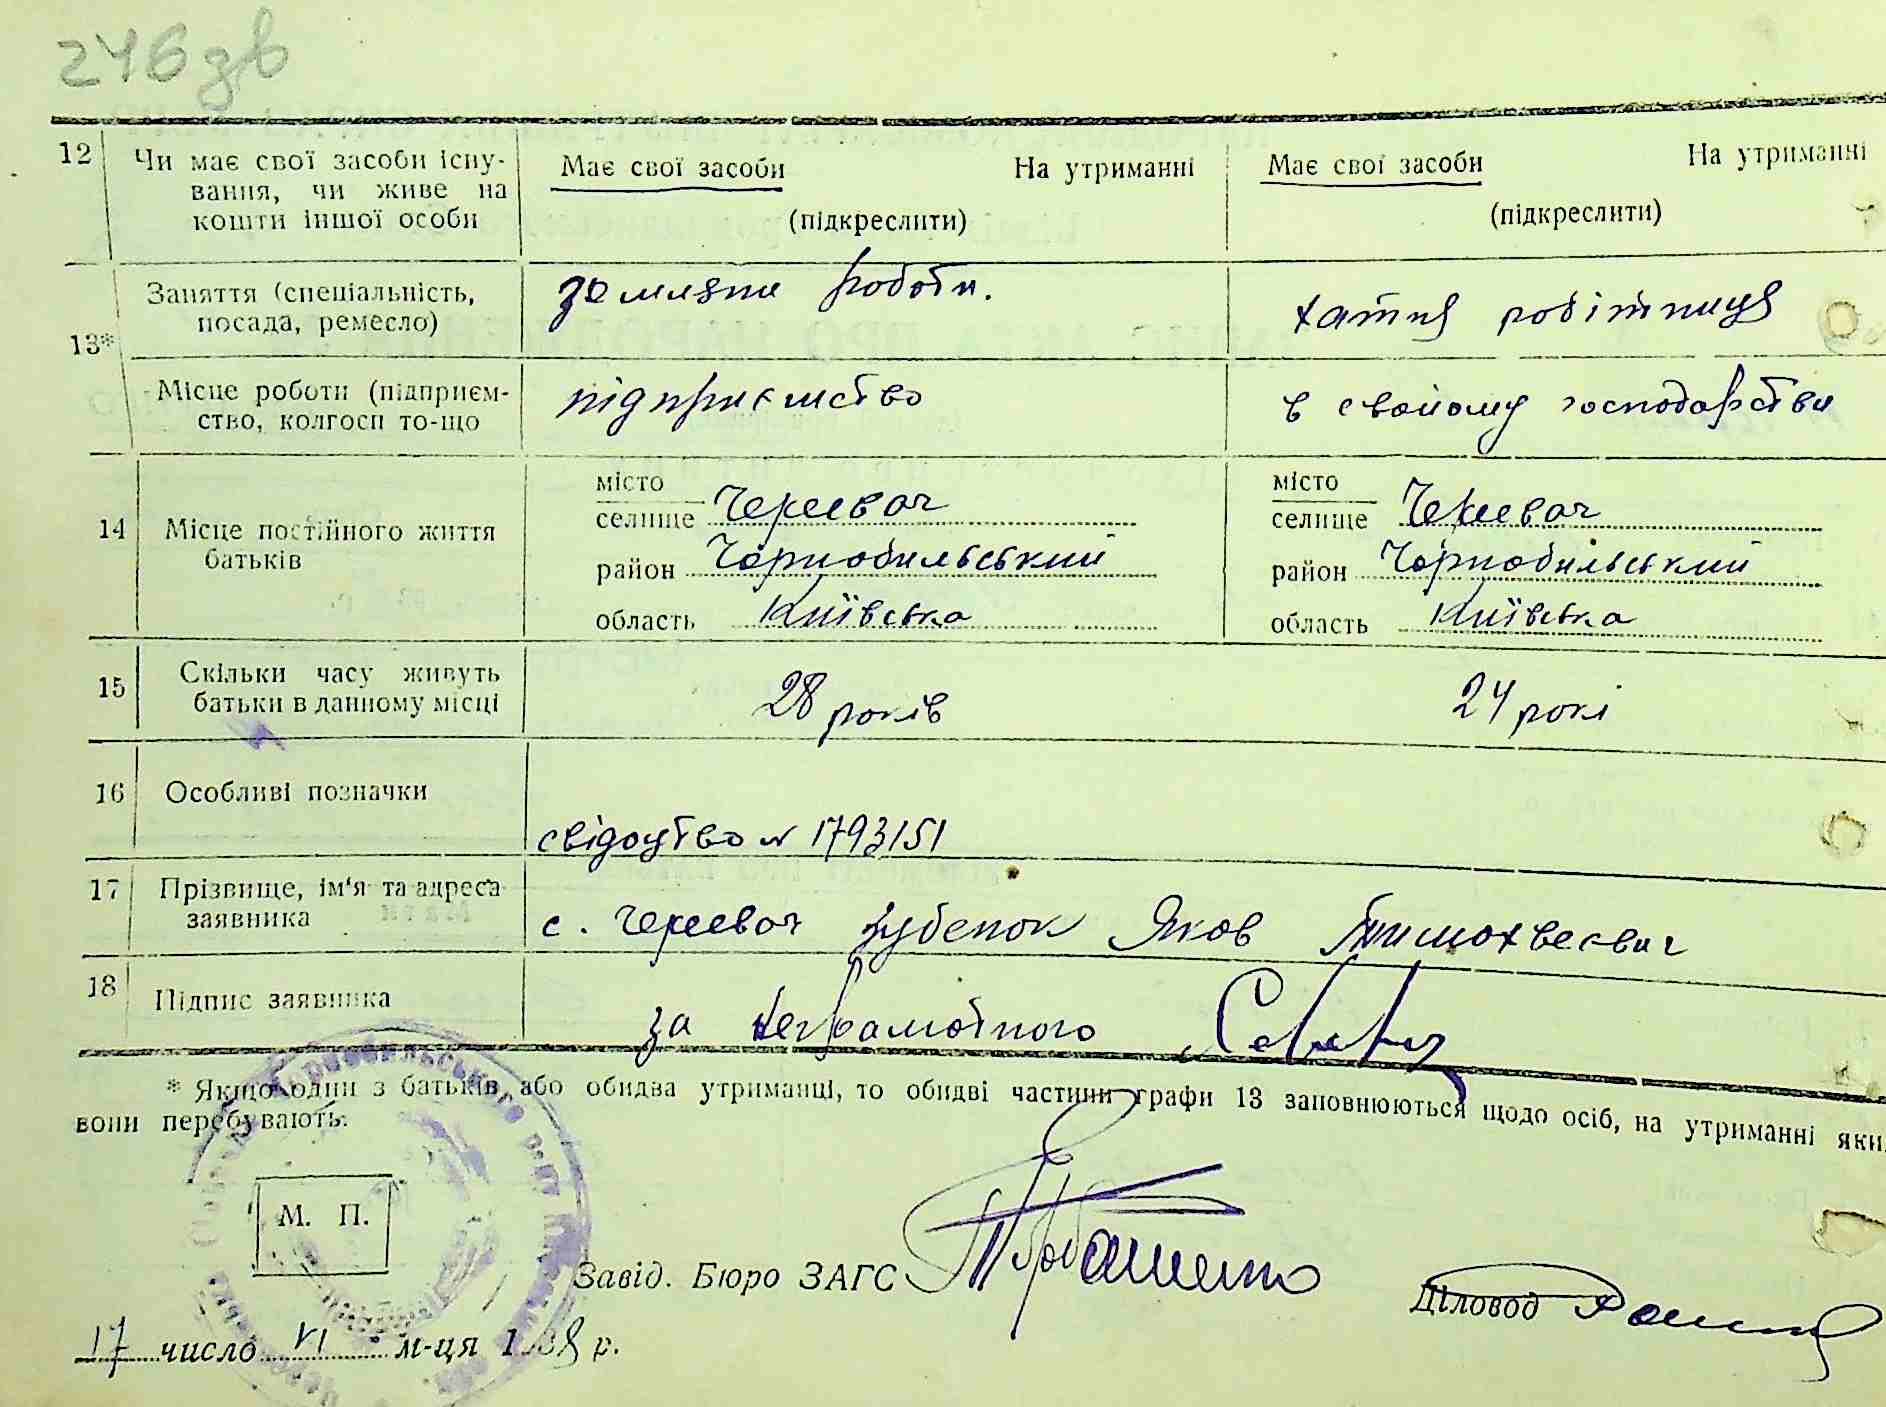 246 зв
12 Чи має свої засоби існу- Має свої засоби На утриманні Має свої засоби На утриманні
вання, чи живе на
кошти іншої особи (підкреслити) (підкреслити)
13* Заняття (спеціальність, земляни роботи. хатня робітниця
посада, ремесло)
Місце роботи (підприєм- підприємство в свойому господарстви
ство, колгосп то-що
місто місто
14 Місце постійного життя селище Черевач селище Черевач
батьків район Чорнобильський район Чорнобильський
область Київська область Київська
15 Скільки часу живуть 28 років 24 рокі
батьки в данному місці
16 Особливі позначки
свідоцтво № 1793151
17 Прізвище, ім'я та адреса
заявника с. Черевач Зубенок Яков Тимохвеевич
18 Підпис заявника за неграмотного
* Якщо один з батьків, або обидва утриманці, то обидві частини графи 13 заповнюються щодо осіб, на утриманні яки
вони перебувають.
М. П.
Завід. Бюро ЗАГС
Діловод
17 число VI м-ця 1938 р.